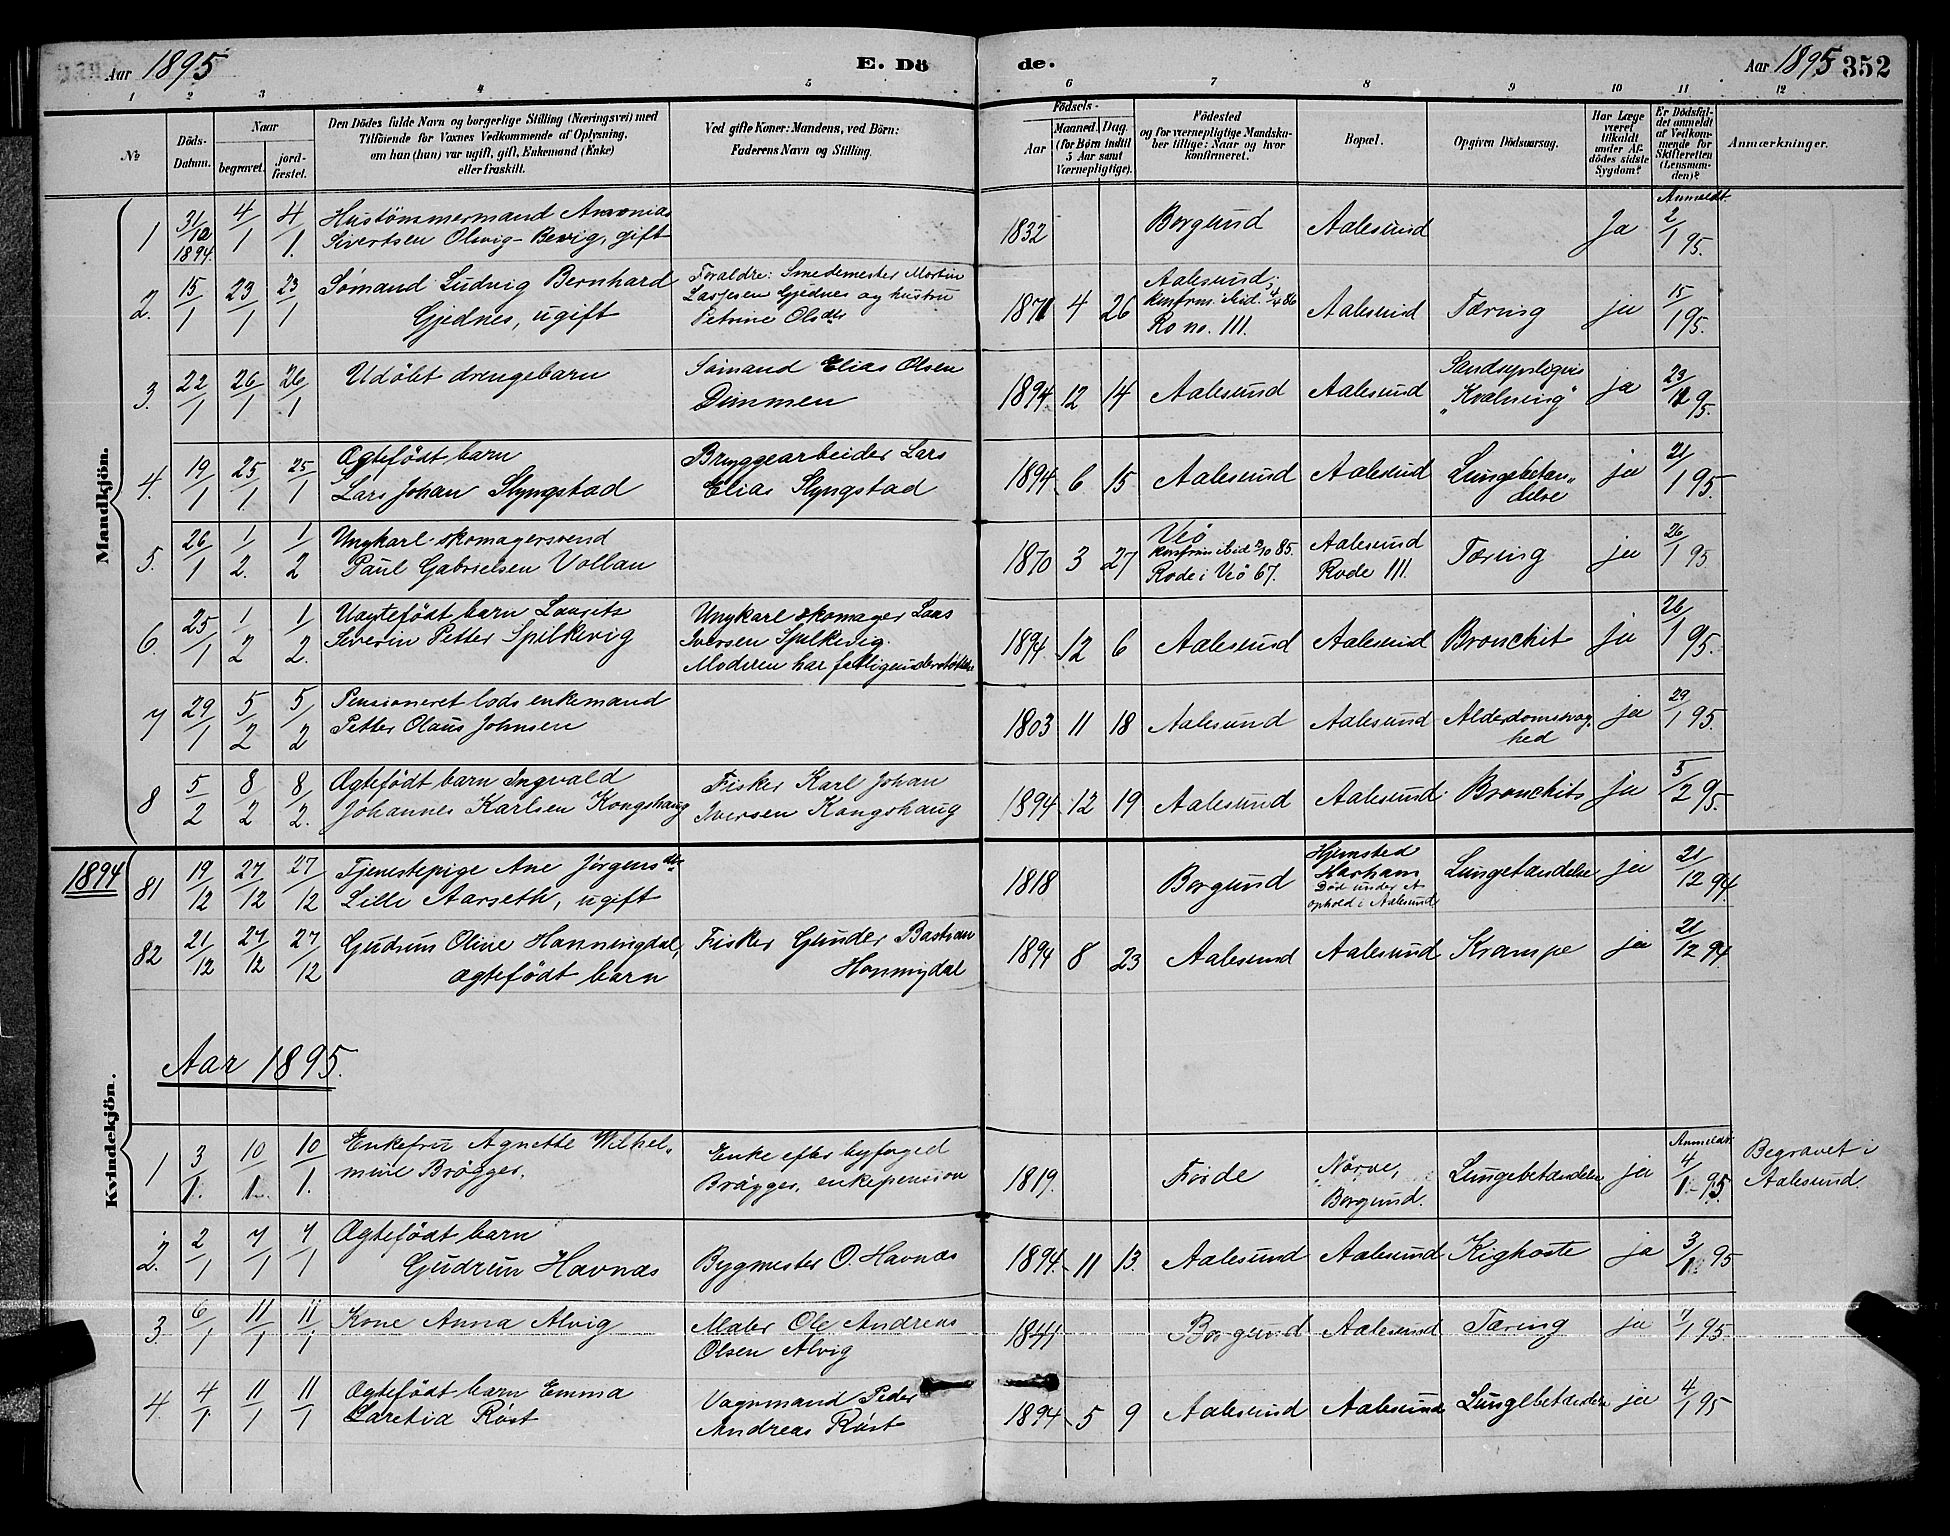 Aar 1895
E. Dö
de.
Aar 1895 352
1 2 3 4 5 6 7 8 9 10 11 12
№
Döds-
Datum.
Naar
begravet.
jord-
fæstet.
Den Dödes fulde Navn og borgerlige Stilling (Næringsvei) med
Tilföiende for Voxnes Vedkommende af Oplysning,
om han (hun) var ugift, gift, Enkemand (Enke)
eller fraskilt.
Ved gifte Koner: Mandens, ved Börn:
Faderens Navn og Stilling.
Födsels-
Aar
Maaned. Dag.
(for Börn indtil
5 Aar samt
Værnepligtige).
Födested
og for værnepligtige Mandska-
ber tillige: Naar og hvor
konfirmeret.
Bopæl.
Opgiven Dödsaarsag.
Har Læge
været
tilkaldt
under Af-
dödes sidste
Sygdom?
Er Dödsfal-
det anmeldt
af Vedkom-
mende for
Skifteretten
(Lensman-
den)?
Anmærkninger.
Mandkjön.
1 31/12 1894 4/1 4/1.
Hustömmermand Ananias
Sivertsen Olwig-Bevig, gift
1832 Borgund Aalesund Ja Anmeldt 2/1 95.
2. 15/1 23/1 23/1
Sömand Ludvig Bernhard
Gjednes, ugift
Foraldre: Smedemester Martin
Lassesen Gjednes og hustru
Petrine Olsdr
1871 4 26
Aalesund;
konfrm. ibid. 4/4 86
Ro no. 111.
Aalesund Tæring ja 15/1 95.
3. 22/1 26/1 26/1
Udöbt drengebarn
Sömand Elias Olsen
Dimmen
1894 12 14 Aalesund Aalesund
Sandsynligvis
"Kvælning"
ja 23/1 95.
4. 19/1 25/1 25/1
Ægtefödt barn
Lars Johan Slyngstad
Bryggearbeider Lars
Elias Slyngstad
1894 6 15 Aalesund Aalesund
Lungebetæn-
delse
ja 21/1 95.
5. 26/1 1/2. 1/2
Ungkarl skomagersvend
Paul Gabrielsen Vollan
1870 3 27
Veö
konfrm ibid 2/10 85.
Rode i Veö 67.
Aalesund
Rode 111.
Tæring ja 26/1 95
6. 25/1 1/2 1/2.
Uægtefödt barn Laurits
Severin Petter Spilkevig
Ungkarl skomager Lars
Iversen Spilkevig.
Moderen har fattigunderstöttelse
1894 12 6 Aalesund Aalesund Bronchit ja 26/1 95.
7 29/1 5/2 5/2
Pensioneret lods enkemand
Petter Olaus Johnsen
1803 11 18 Aalesund Aalesund
Alderdomssvag-
hed
ja 29/1 95.
8 5/2 8/2 8/2.
Ægtefödt barn Ingvald
Johannes Karlsen Kongshaug
Fisker Karl Johan
Iversen Kongshaug
1894 12 19 Aalesund Aalesund Bronchits ja 5/2 95.
1894
81 19/12 27/12 27/12
Tjenestepige Ane Jörgensdr
Lille Aarseth, ugift
1818 Borgund
Hjemsted
Harham
Död under
ophold i Aalesund
Lungebetændelse ja 21/12 94.
82 21/12 27/12 27/12
Gudrun Oline Honningdal,
ægtefödt barn
Fisker Gunder Bastian
Honnigdal
1894 8 23 Aalesund Aalesund Krampe ja 21/12 94.
Aar 1895.
Kvindekjön.
1 3/1. 10/1 10/1.
Enkefru Agnette Vilhel-
mine Brögger.
Enke efter byfoged
Brögger, enkepension
1819. Förde
Nörve,
Borgund.
Lungebetændelse ja Anmeldt 4/1 95
Begravet i
Aalesund.
2. 2/1 7/1 7/1
Ægtefödt barn
Gudrun Havnæs
Bygmester O. Havnæs
1894 11 13. Aalesund Aalesund Kighoste ja 3/1 95
3. 6/1 11/1 11/1
Kone Anna Alvig
Maler Ole Andreas
Olsen Alvig
1841 Borgund Aalesund Tæring ja 7/1 95.
4. 4/1 11/1 11/1
Ægtefödt barn Emma
Laretia Röst
Vognmand Peder
Andreas Röst
1894 5 9 Aalesund Aalesund Lungebetændelse ja 4/1 95